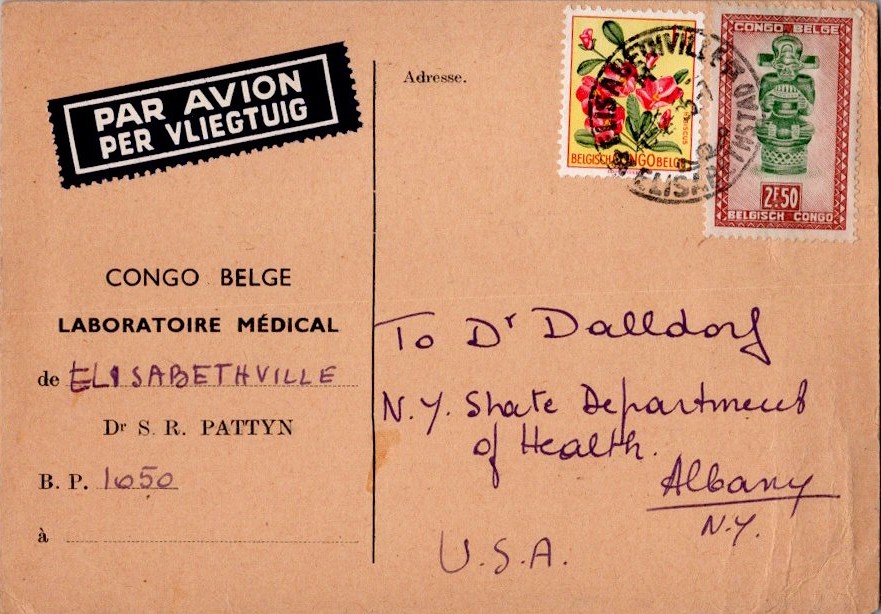 PAR AVION
PER VLIEGTUIG
CONGO BELGE
LABORATOIRE MÉDICAL
de ELISABETHVILLE
Dr S. R. PATTYN
B. P. 1050
à
Adresse.
BELGISCH CONGO BELGE
CONGO BELGE
2F.50
BELGISCH CONGO
ELISABETHVILLE
ELISABETHSTAD
To Dr Dalldorf
N.Y. State Department
of Health.
Albany
N.Y.
U.S.A.